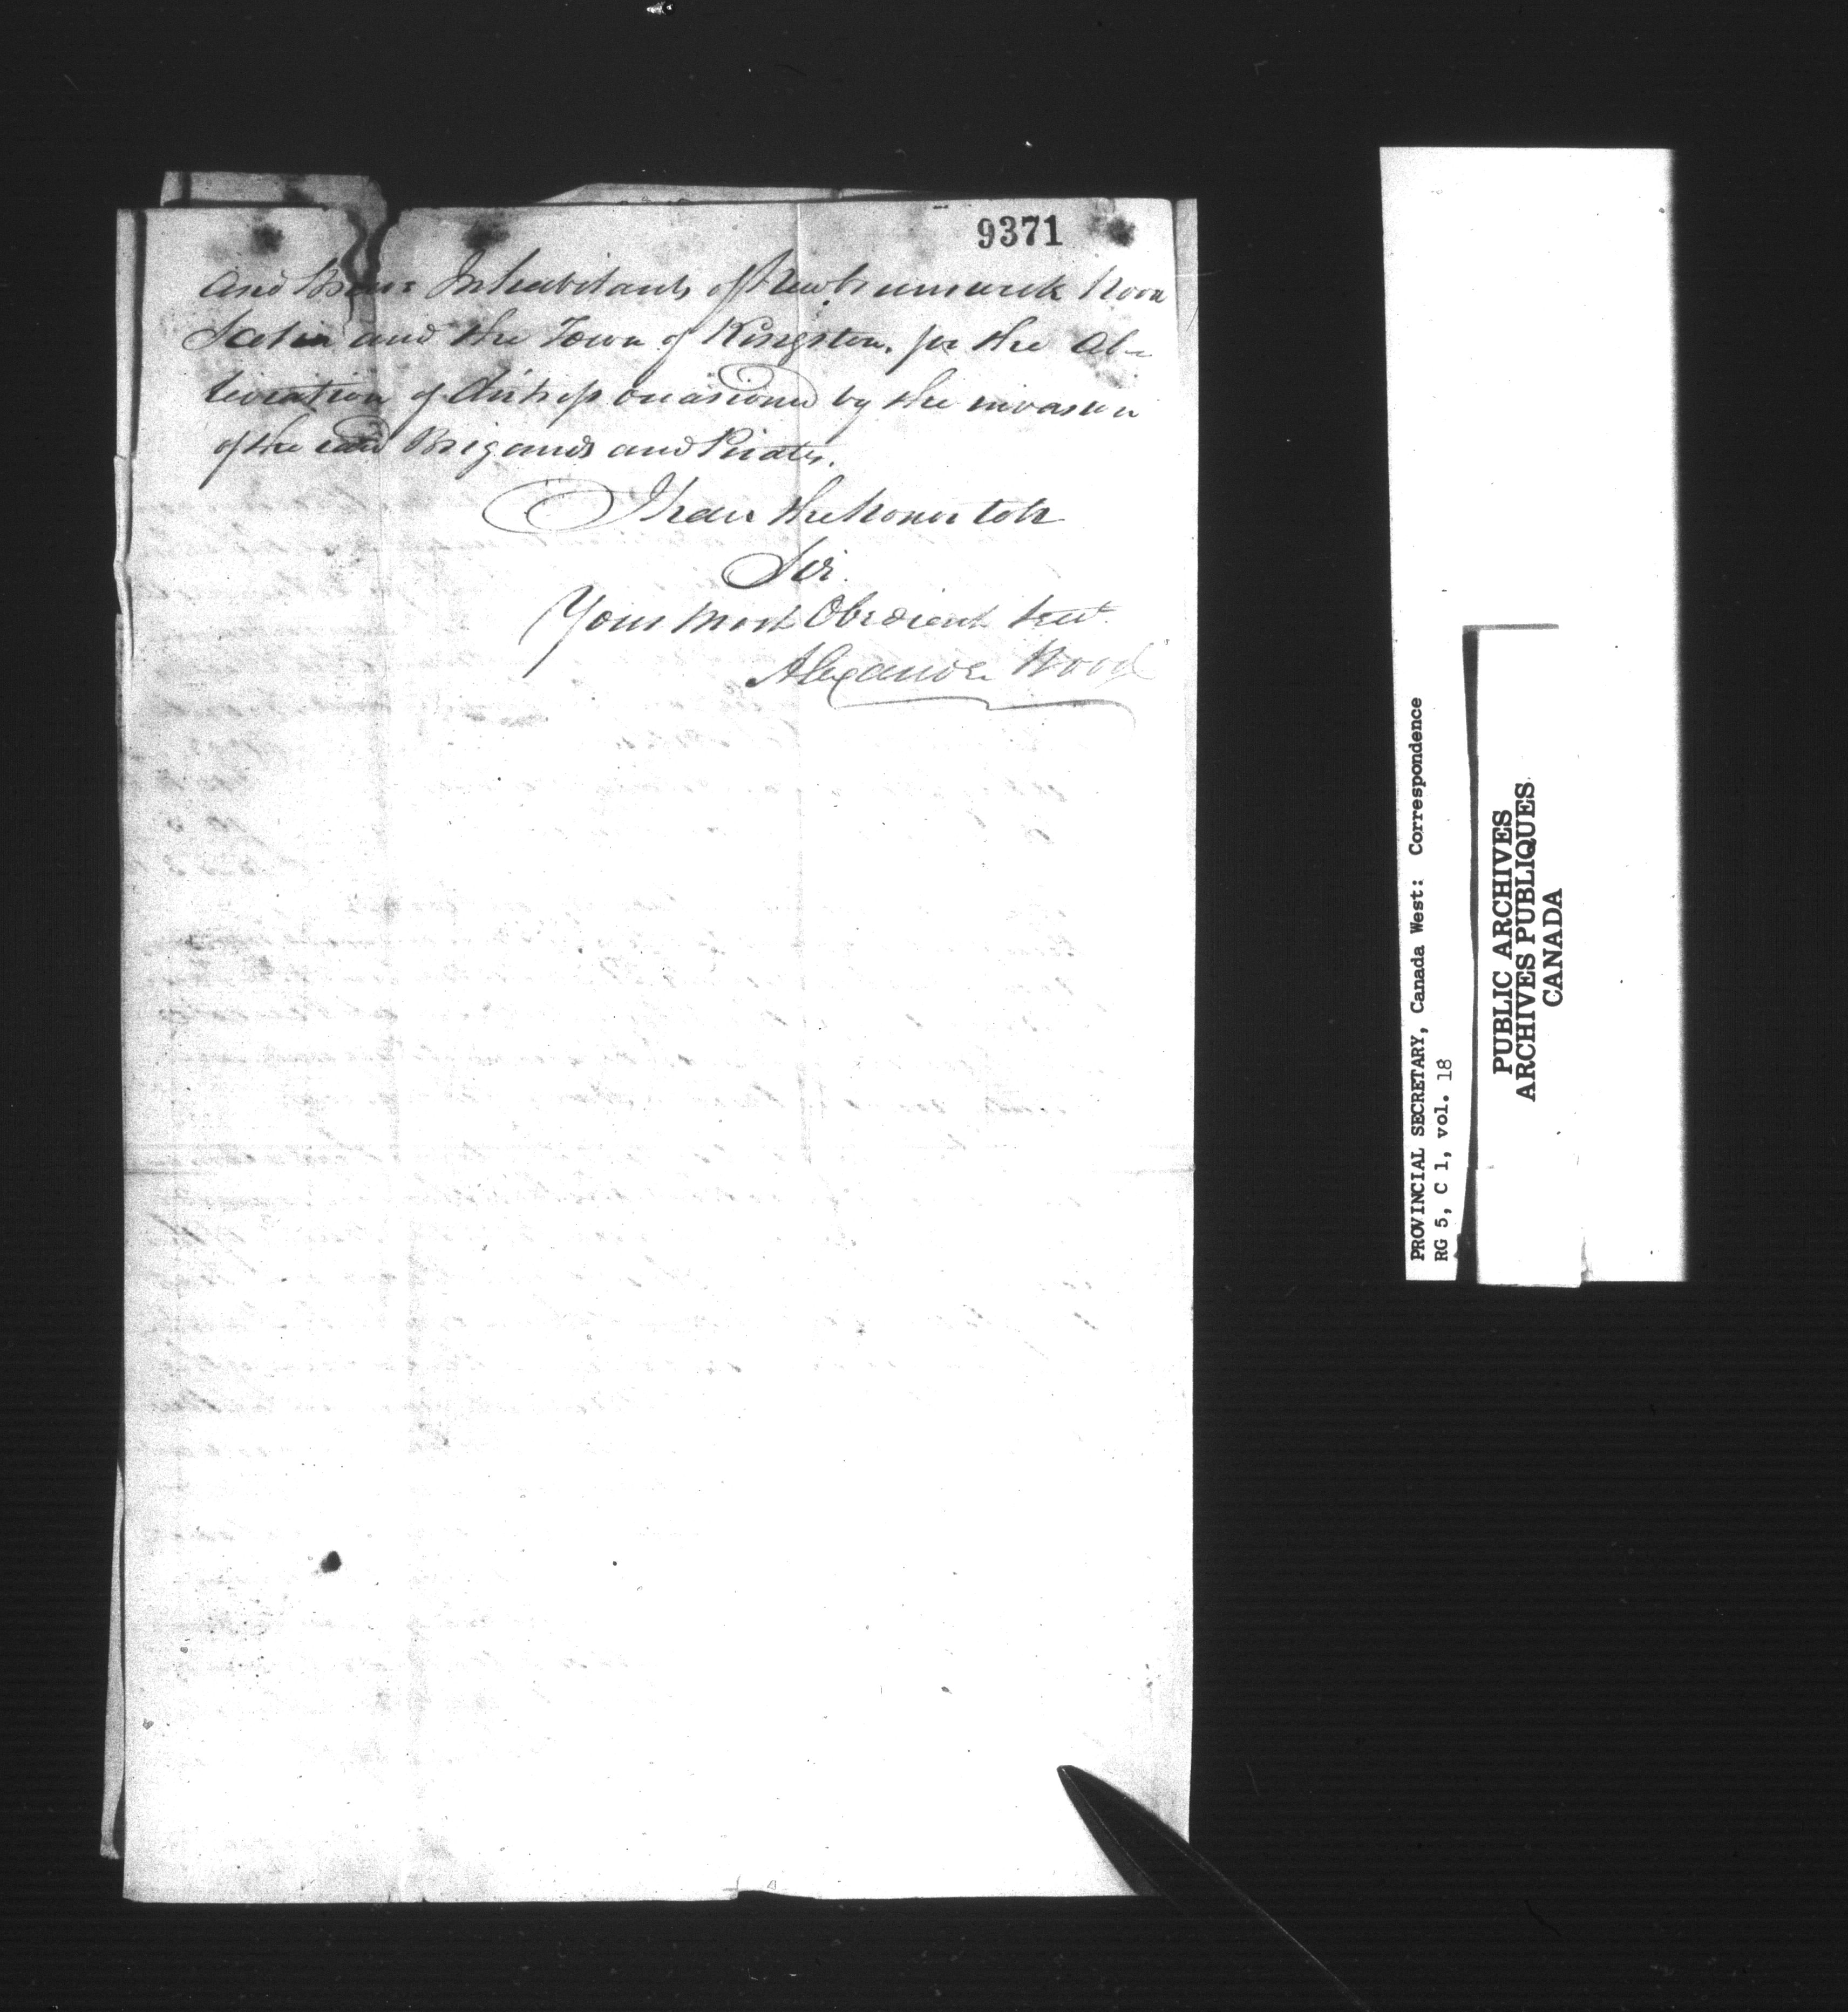 9371
and Brave Inhabitants of Newbrunswick Nova
Scotia and the Town of Kingston, for the al-
leviation of distress occasioned by the invasion
of the said Brigands and Pirates.
I have the honor to be
Sir.
Your most Obedient Servt.
Alexander Wood
PROVINCIAL SECRETARY, Canada West: Correspondence
RG 5, C 1, vol. 18
PUBLIC ARCHIVES
ARCHIVES PUBLIQUES
CANADA